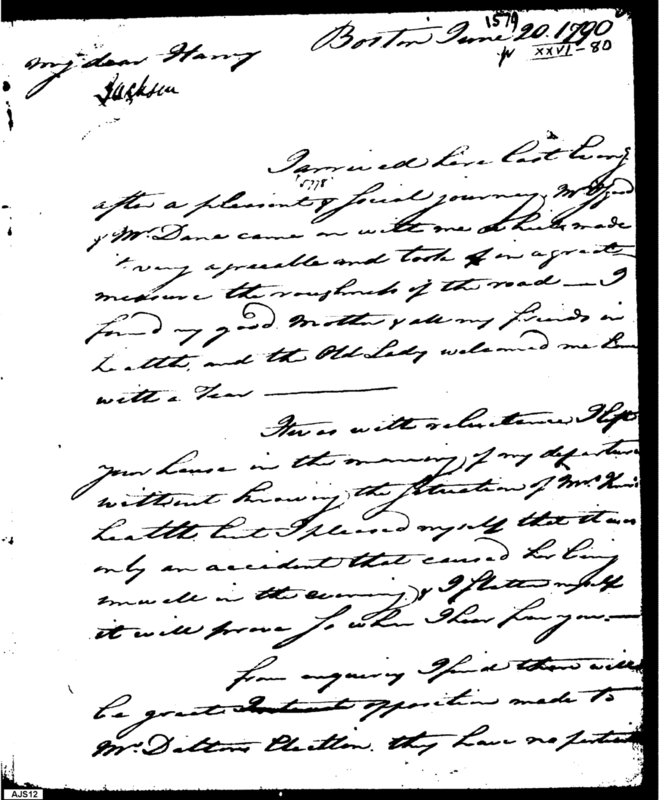 1579
Boston June 20. 1790
XXVI-80
my dear Harry
Jackson
I arrived here last Eveng
after a pleasant & social journey, Mr
& Mr. Dane came on with me which made
it very agreeable and took off in a great
measure the roughness of the road — I
found my good Mother & all my friends in
health, and the Old Lady welcomed me home
with a Tear ———
It was with reluctance I left
your house in the morning of my departure
without knowing the situation of Mrs.
health but I pleased myself that it was
only an accident that caused her being
unwell in the evening, & I flatter myself
it will prove so when I hear from you —
from enquiries I find there will
be great opposition made to
Mr. Daltons Election. they have no
AJS12